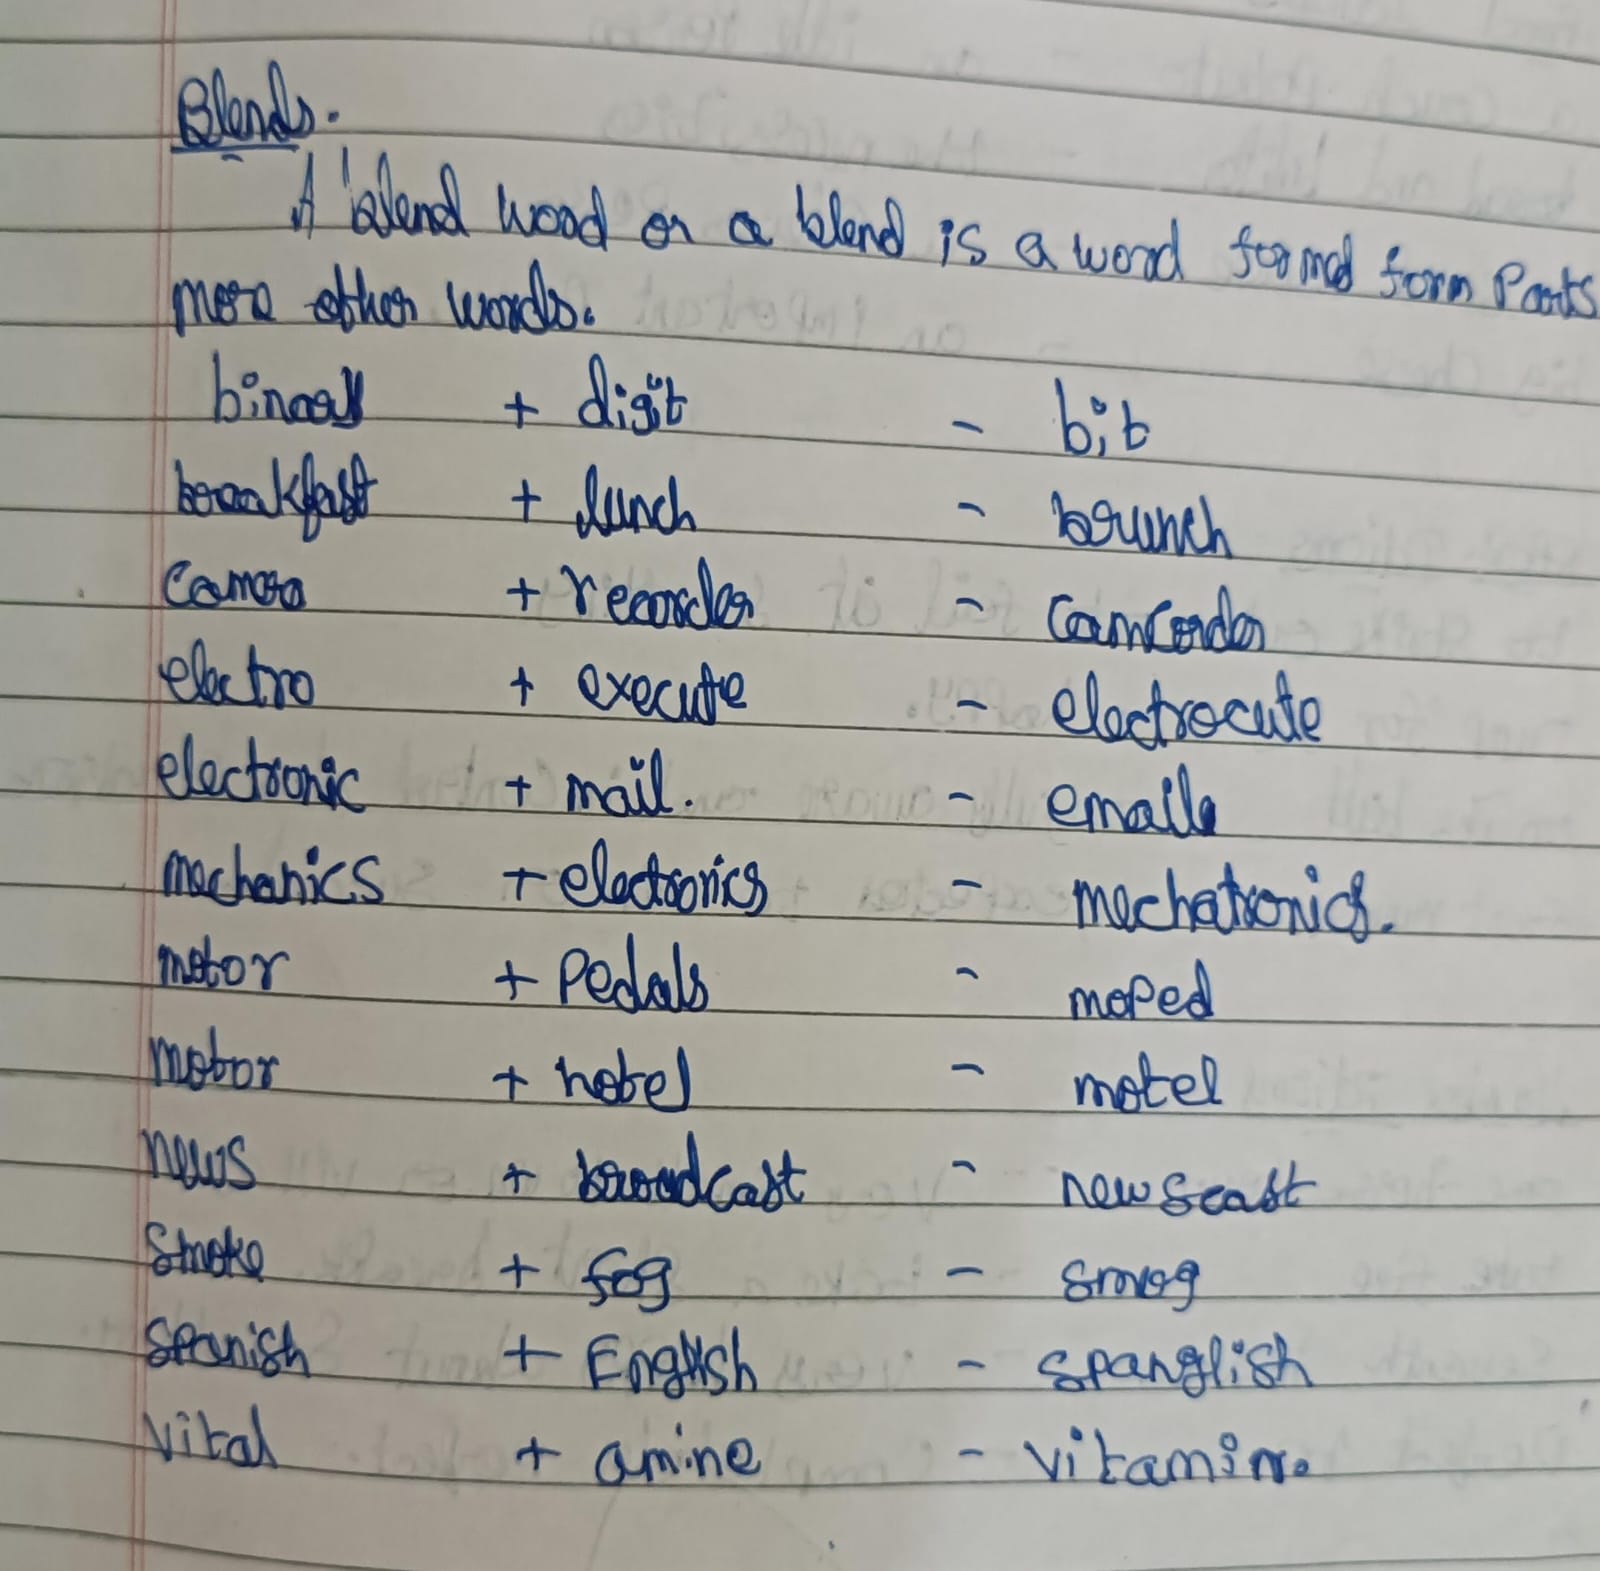 Blends.
A blend word or a blend is a word formed form Parts
more other words.
binary + digit - bit
breakfast + lunch - brunch
camera + recorder - camcorder
electro + execute - electrocute
electronic + mail. - email
mechanics + electronics - mechatronics.
motor + Pedals - moped
motor + hotel - motel
news + broadcast - newscast
Smoke + fog - smog
Spanish + English - spanglish
Vital + amine - vitamin.